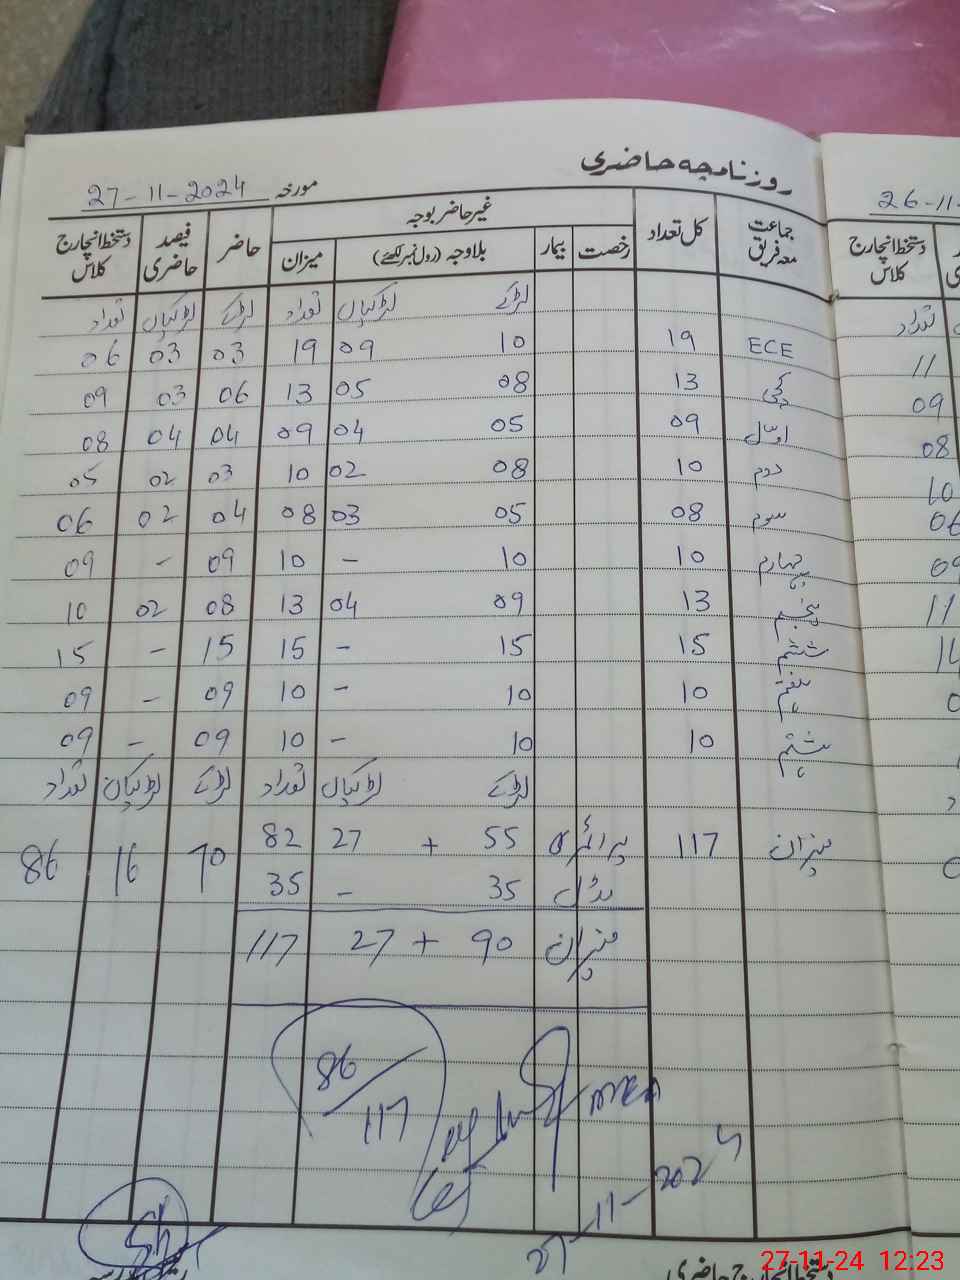 روزنامچہ حاضری
مورخہ 27-11-2024
26-11-
جماعت معہ فریق کل تعداد غیر حاضر بوجہ حاضر فیصد حاضری دستخط انچارج کلاس
رخصت بیمار بلاوجہ (رول نمبر لکھئے) میزان
دستخط انچارج کلاس
لڑکے لڑکیاں تعداد لڑکے لڑکیاں تعداد
تعداد
ECE 19 10 09 19 03 03 06
11
کچی 13 08 05 13 06 03 09
09
اول 09 05 04 09 04 04 08
08
دوم 10 08 02 10 03 02 05
10
سوم 08 05 03 08 04 02 06
06
چہارم 10 10 - 10 09 - 09
09
پنجم 13 09 04 13 08 02 10
11
ششم 15 15 - 15 15 - 15
14
ہفتم 10 10 - 10 09 - 09
ہشتم 10 10 - 10 09 - 09
لڑکے لڑکیاں تعداد لڑکے لڑکیاں تعداد
میزان 117 پرائمری 55 + 27 82 70 16 86
مڈل 35 - 35
میزان 90 + 27 117
86/117
27-11-2024
دستخط انچارج حاضری
27-11-24 12:23